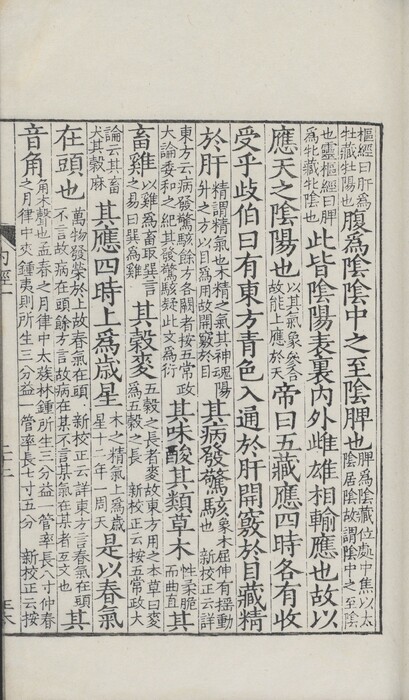 樞經曰肝爲牡藏牡陽也腹爲陰陰中之至陰脾也脾爲陰藏位處中焦以太陰居陰故謂陰中之至陰
也靈樞經曰脾爲牝藏牝陰也此皆陰陽表裏內外雌雄相輸應也故以
應天之陰陽也以其氣象參合故能上應於天帝曰五藏應四時各有收
受乎歧伯曰有東方青色入通於肝開竅於目藏精
於肝精謂精氣也木精之氣其神魂陽升之方以目爲用故開竅於目其病發驚駭象木屈伸有搖動也新校正云詳
東方云病發驚駭餘方各闕者按五常政大論委和之紀其發驚駭疑此文爲衍其味酸其類草木性柔脆而曲直其
畜雞以雞爲畜取巽言之易曰巽爲雞其穀麥五穀之長者麥故東方用之本草曰麥爲五穀之長 新校正云按五常政大
論云其畜犬其穀麻其應四時上爲歲星木之精氣上爲歲星十二年一周天是以春氣
在頭也萬物發榮於上故春氣在頭 新校正云詳東方言春氣在頭不言故病在頭餘方言故病在某不言某氣在某者互文也其
音角角木聲也孟春之月律中太蔟林鍾所生三分益一管率長八寸仲春之月律中夾鍾夷則所生三分益一管率長七寸五分 新校正云按